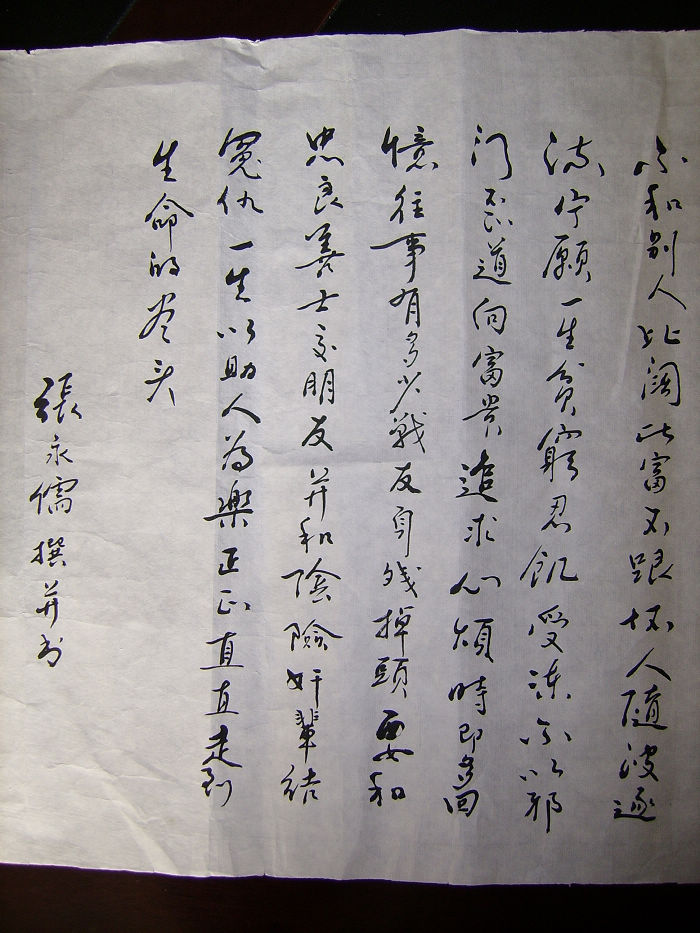 不和别人比阔比富不跟坏人随波逐
流宁愿一生贫穷忍飢受冻不以邪
门歪道向富贵追求心烦時即多回
憶往事有多少戰友身残掉頭要和
忠良善士交朋友并和陰險奸辈结
冤仇一生以助人為樂正正直直走到
生命的尽头
張永儒撰并书